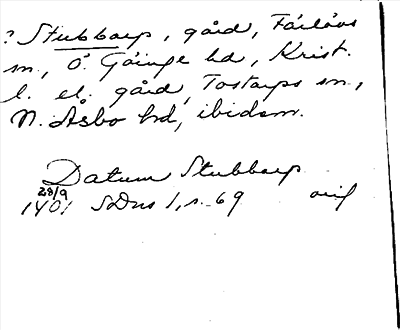 ? Stubbarp, gård, Färlövs
sn, Ö. Göinge hd, Krist.
l. el. gård, Tostarps sn,
N. Åsbo hd, ibidem.
Datum Stubbarp
28/9
1401 SDns 1, s. 69 orig